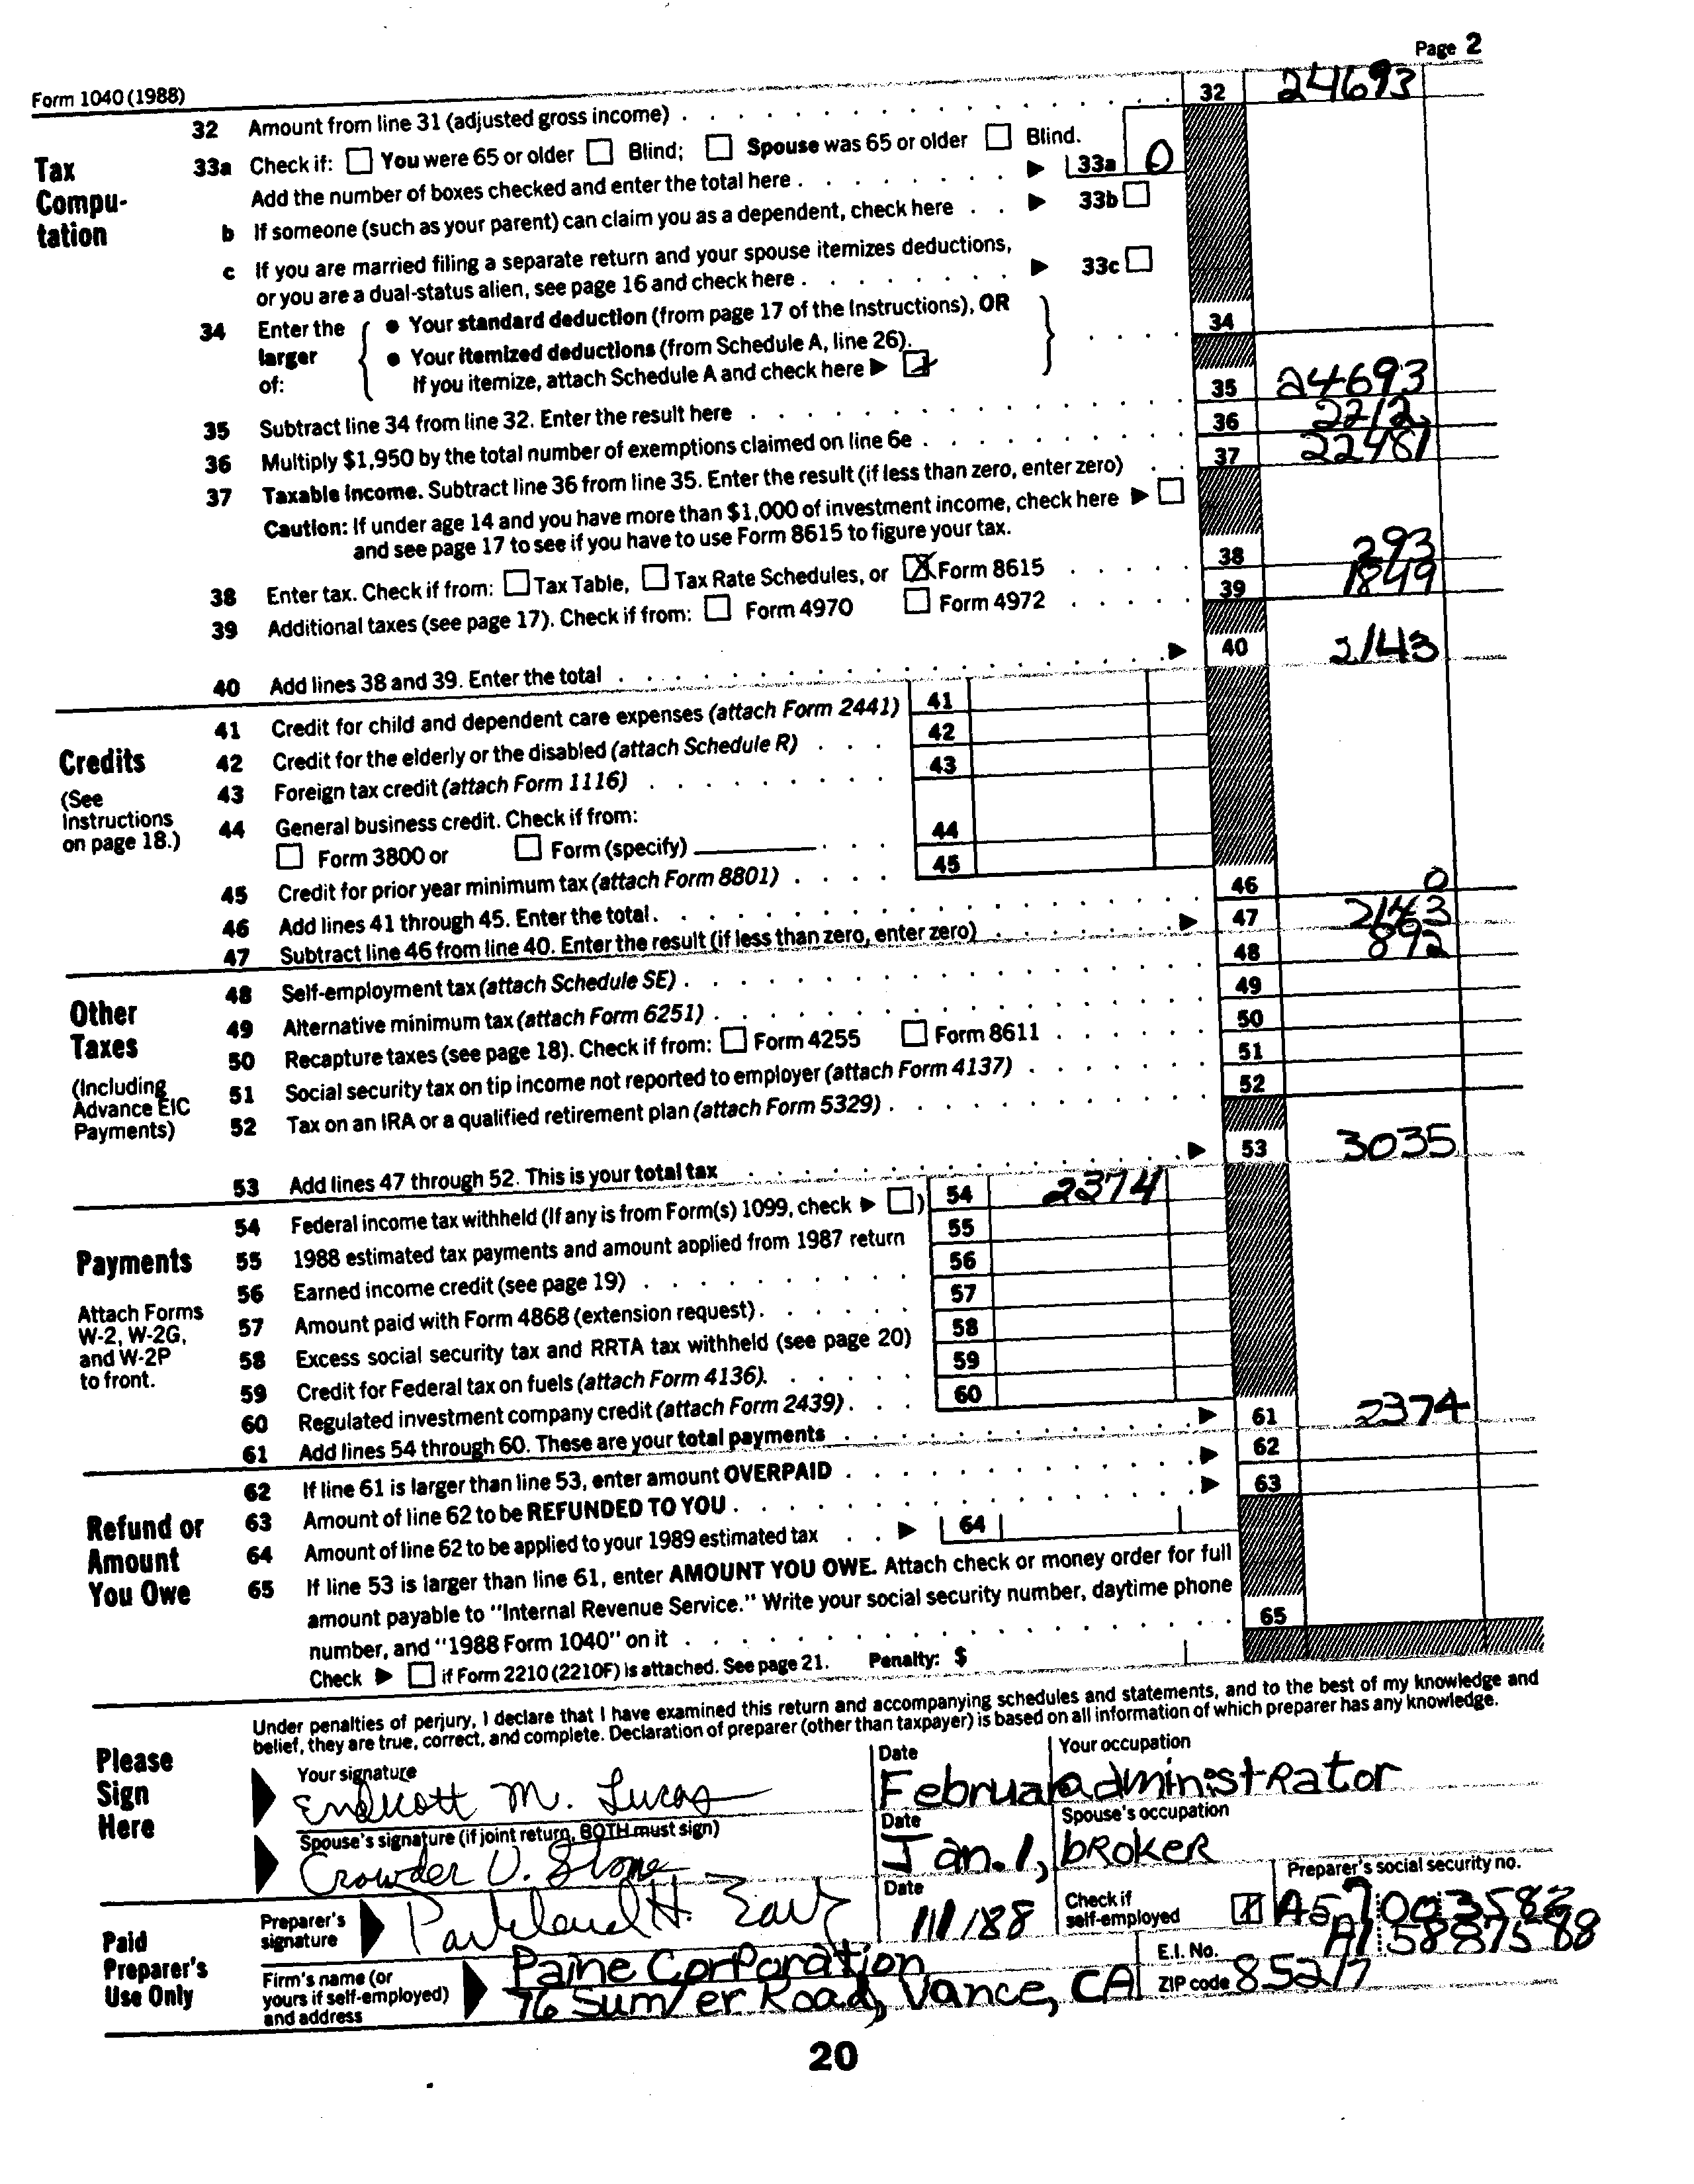 Page 2
Form 1040 (1988)
32 Amount from line 31 (adjusted gross income) 32 24693
Tax Computation
33a Check if: You were 65 or older Blind; Spouse was 65 or older Blind.
Add the number of boxes checked and enter the total here 33a 0
b If someone (such as your parent) can claim you as a dependent, check here 33b
c If you are married filing a separate return and your spouse itemizes deductions,
or you are a dual-status alien, see page 16 and check here 33c
34 Enter the larger of:
• Your standard deduction (from page 17 of the Instructions), OR
• Your itemized deductions (from Schedule A, line 26).
If you itemize, attach Schedule A and check here
34
35 Subtract line 34 from line 32. Enter the result here 35 24693
36 Multiply $1,950 by the total number of exemptions claimed on line 6e 36 2212
37 Taxable income. Subtract line 36 from line 35. Enter the result (if less than zero, enter zero) 37 22481
Caution: If under age 14 and you have more than $1,000 of investment income, check here
and see page 17 to see if you have to use Form 8615 to figure your tax.
38 Enter tax. Check if from: Tax Table, Tax Rate Schedules, or X Form 8615 38 293
39 Additional taxes (see page 17). Check if from: Form 4970 Form 4972 39 1849
40 Add lines 38 and 39. Enter the total 40 2143
Credits
(See Instructions on page 18.)
41 Credit for child and dependent care expenses (attach Form 2441) 41
42 Credit for the elderly or the disabled (attach Schedule R) 42
43 Foreign tax credit (attach Form 1116) 43
44 General business credit. Check if from:
Form 3800 or Form (specify) 44
45 Credit for prior year minimum tax (attach Form 8801) 45
46 Add lines 41 through 45. Enter the total. 46 0
47 Subtract line 46 from line 40. Enter the result (if less than zero, enter zero) 47 2143
Other Taxes
(Including Advance EIC Payments)
48 Self-employment tax (attach Schedule SE) 48 892
49 Alternative minimum tax (attach Form 6251) 49
50 Recapture taxes (see page 18). Check if from: Form 4255 Form 8611 50
51 Social security tax on tip income not reported to employer (attach Form 4137) 51
52 Tax on an IRA or a qualified retirement plan (attach Form 5329) 52
53 Add lines 47 through 52. This is your total tax 53 3035
Payments
Attach Forms W-2, W-2G, and W-2P to front.
54 Federal income tax withheld (If any is from Form(s) 1099, check ) 54 2374
55 1988 estimated tax payments and amount applied from 1987 return 55
56 Earned income credit (see page 19) 56
57 Amount paid with Form 4868 (extension request) 57
58 Excess social security tax and RRTA tax withheld (see page 20) 58
59 Credit for Federal tax on fuels (attach Form 4136) 59
60 Regulated investment company credit (attach Form 2439) 60
61 Add lines 54 through 60. These are your total payments 61 2374
Refund or Amount You Owe
62 If line 61 is larger than line 53, enter amount OVERPAID 62
63 Amount of line 62 to be REFUNDED TO YOU 63
64 Amount of line 62 to be applied to your 1989 estimated tax 64
65 If line 53 is larger than line 61, enter AMOUNT YOU OWE. Attach check or money order for full
amount payable to "Internal Revenue Service." Write your social security number, daytime phone
number, and "1988 Form 1040" on it 65
Check if Form 2210 (2210F) is attached. See page 21. Penalty: $
Please Sign Here
Under penalties of perjury, I declare that I have examined this return and accompanying schedules and statements, and to the best of my knowledge and
belief, they are true, correct, and complete. Declaration of preparer (other than taxpayer) is based on all information of which preparer has any knowledge.
Your signature Date Your occupation
Endicott M. Lucas Februa administrator
Spouse's signature (if joint return, BOTH must sign) Date Spouse's occupation
Crowder V. Stone Jan. 1, broker
Paid Preparer's Use Only
Preparer's signature Date Check if self-employed Preparer's social security no.
Parkland H. 1/1/88 A57003582
Firm's name (or yours if self-employed) and address E.I. No. ZIP code
Paine Corporation A15887588
Road, Vance, CA 85217
20